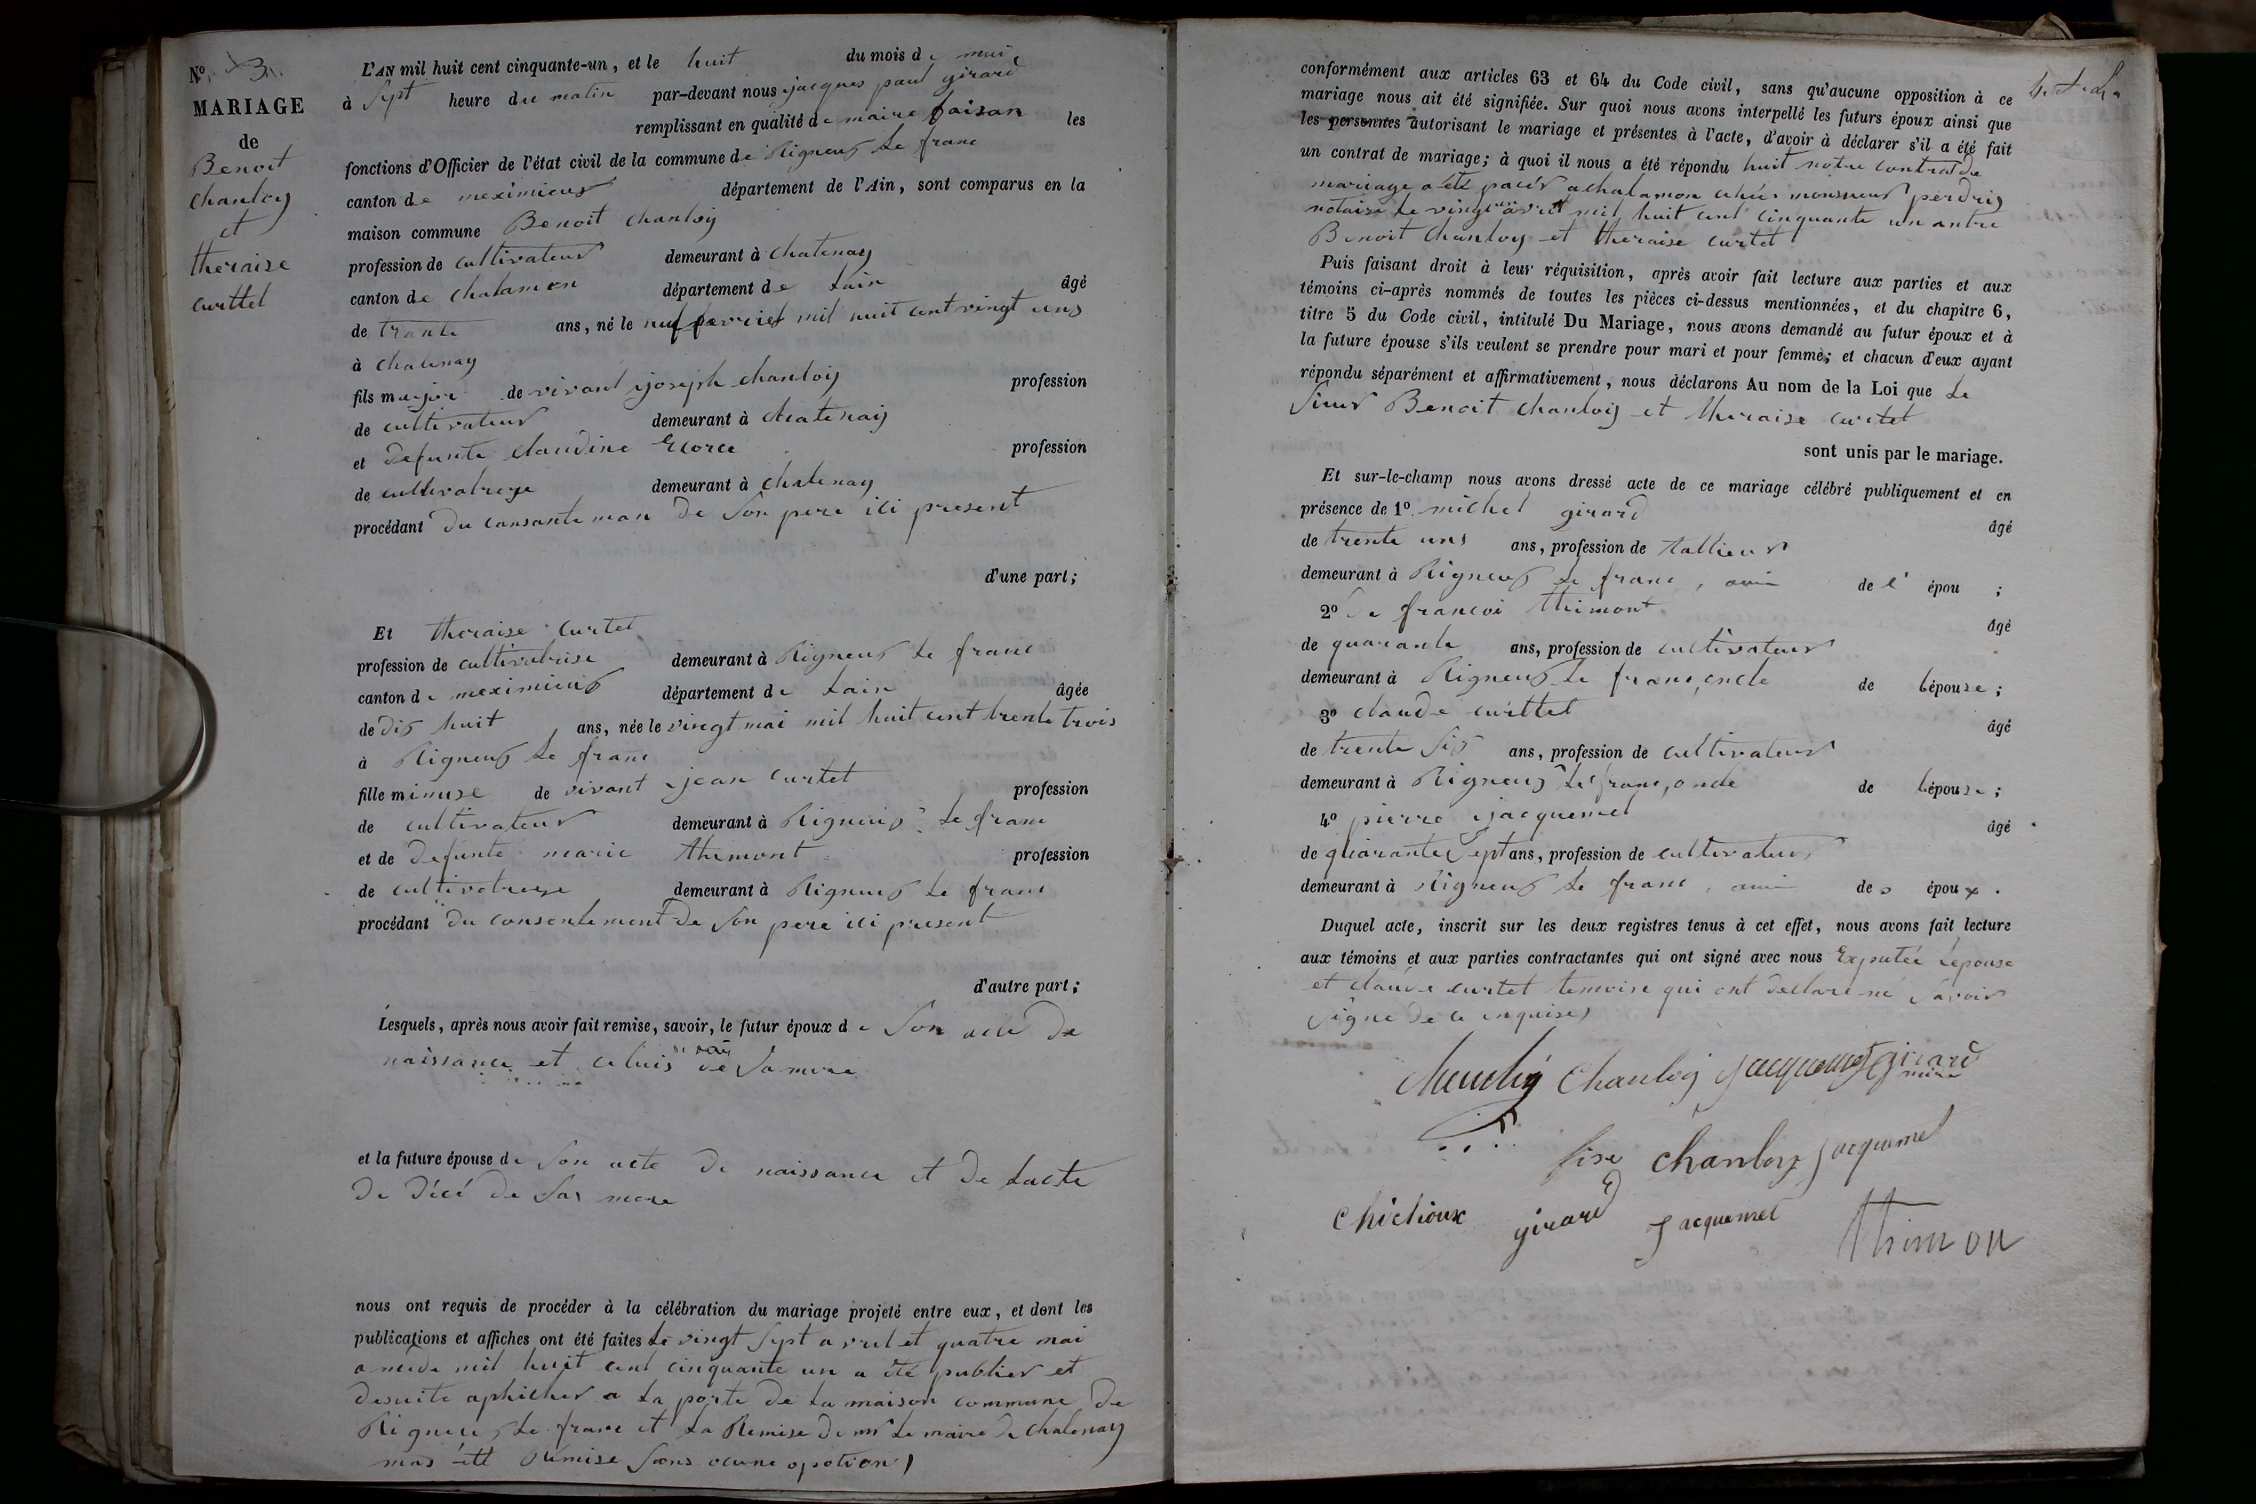 N° 3.
MARIAGE
de
Benoit
chanloy
et
theraise
curttet
L'AN mil huit cent cinquante-un, et le huit du mois de mai
à sept heure du matin par-devant nous jacques paul girard
remplissant en qualité de maire faisan les
fonctions d'Officier de l'état civil de la commune de Rigneux le franc
canton de meximieux département de l'Ain, sont comparus en la
maison commune Benoit chanloy
profession de cultivateur demeurant à chatenay
canton de chalamon département de Lain âgé
de trante ans, né le neuf fevrier mil huit cent vingt uns
à chatenay
fils major de vivant joseph chanloy profession
de cultivateur demeurant à chatenay
et defunte claudine Ecorce profession
de cultivatreze demeurant à chatenay
procédant du consanteman de son pere ici present
d'une part;
Et theraise curtet
profession de cultivatrise demeurant à Rigneux le franc
canton de meximieux département de Lain âgée
de dix huit ans, née le vingt mai mil huit cent trente trois
à Rigneux le franc
fille minuse de vivant jean curtet profession
de cultivateur demeurant à Rigneux le franc
et de defunte marie themont profession
de cultivatreze demeurant à Rigneux le franc
procédant du consentement de son pere ici present
d'autre part;
Lesquels, après nous avoir fait remise, savoir, le futur époux de son acte de
naissance et celuis de sa mere
et la future épouse de son acte de naissance et de Lacte
de décé de sas mere
nous ont requis de procéder à la célébration du mariage projeté entre eux, et dont les
publications et affiches ont été faites le vingt sept avril et quatre mai
mil huit cent cinquante un a été publier et
desuite aphicher a la porte de la maison commune de
Rigneux le franc et la Remise de mr le maire de chatenay
mas été Rémise sans ocune opotion
conformément aux articles 63 et 64 du Code civil, sans qu'aucune opposition à ce
mariage nous ait été signifiée. Sur quoi nous avons interpellé les futurs époux ainsi que
les personnes autorisant le mariage et présentes à l'acte, d'avoir à déclarer s'il a été fait
un contrat de mariage; à quoi il nous a été répondu huit notre contrat de
mariage a été pacér a chalamon chér monsieur perdrix
notaire le vingt avril mil huit cent cinquante un antre
Benoit chanloy et theraise curtet
Puis faisant droit à leur réquisition, après avoir fait lecture aux parties et aux
témoins ci-après nommés de toutes les pièces ci-dessus mentionnées, et du chapitre 6,
titre 5 du Code civil, intitulé Du Mariage, nous avons demandé au futur époux et à
la future épouse s'ils veulent se prendre pour mari et pour femme; et chacun d'eux ayant
répondu séparément et affirmativement, nous déclarons Au nom de la Loi que le
sieur Benoit chanloy et theraise curtet
sont unis par le mariage.
Et sur-le-champ nous avons dressé acte de ce mariage célébré publiquement et en
présence de 1° michel girard âgé
de trente uns ans, profession de tallieur
demeurant à Rigneux le franc, ami de l' épou ;
2° francoi thimont âgé
de quarante ans, profession de cultivateur
demeurant à Rigneux le franc, oncle de Lépouze ;
3° claude curttet âgé
de trente six ans, profession de cultivateur
demeurant à Rigneux le franc, oncle de Lépouze ;
4° pierre jacquemet âgé
de quarante sept ans, profession de cultivateur
demeurant à Rigneux le franc, ami des époux.
Duquel acte, inscrit sur les deux registres tenus à cet effet, nous avons fait lecture
aux témoins et aux parties contractantes qui ont signé avec nous Exputée Lépouse
et claude curtet temoire qui ont declaré ne savoir
signé de ce enquises
Chanloy Jacquemet girard
maire
Chanloy Jacquemet
Chichoux girard Jacquemet Thimon